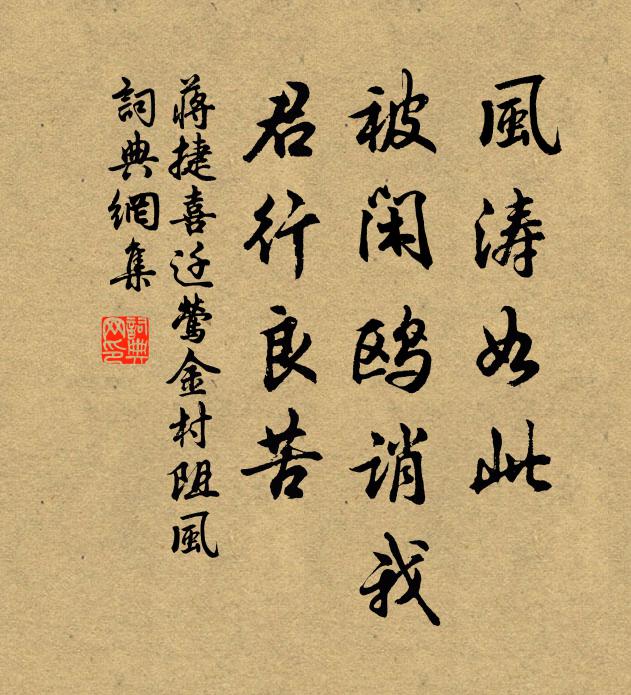 風涛如此
被閑鸥誚我
君行良苦
蒋捷喜迁鶯金村阻風
詞典網集
詞典
网印